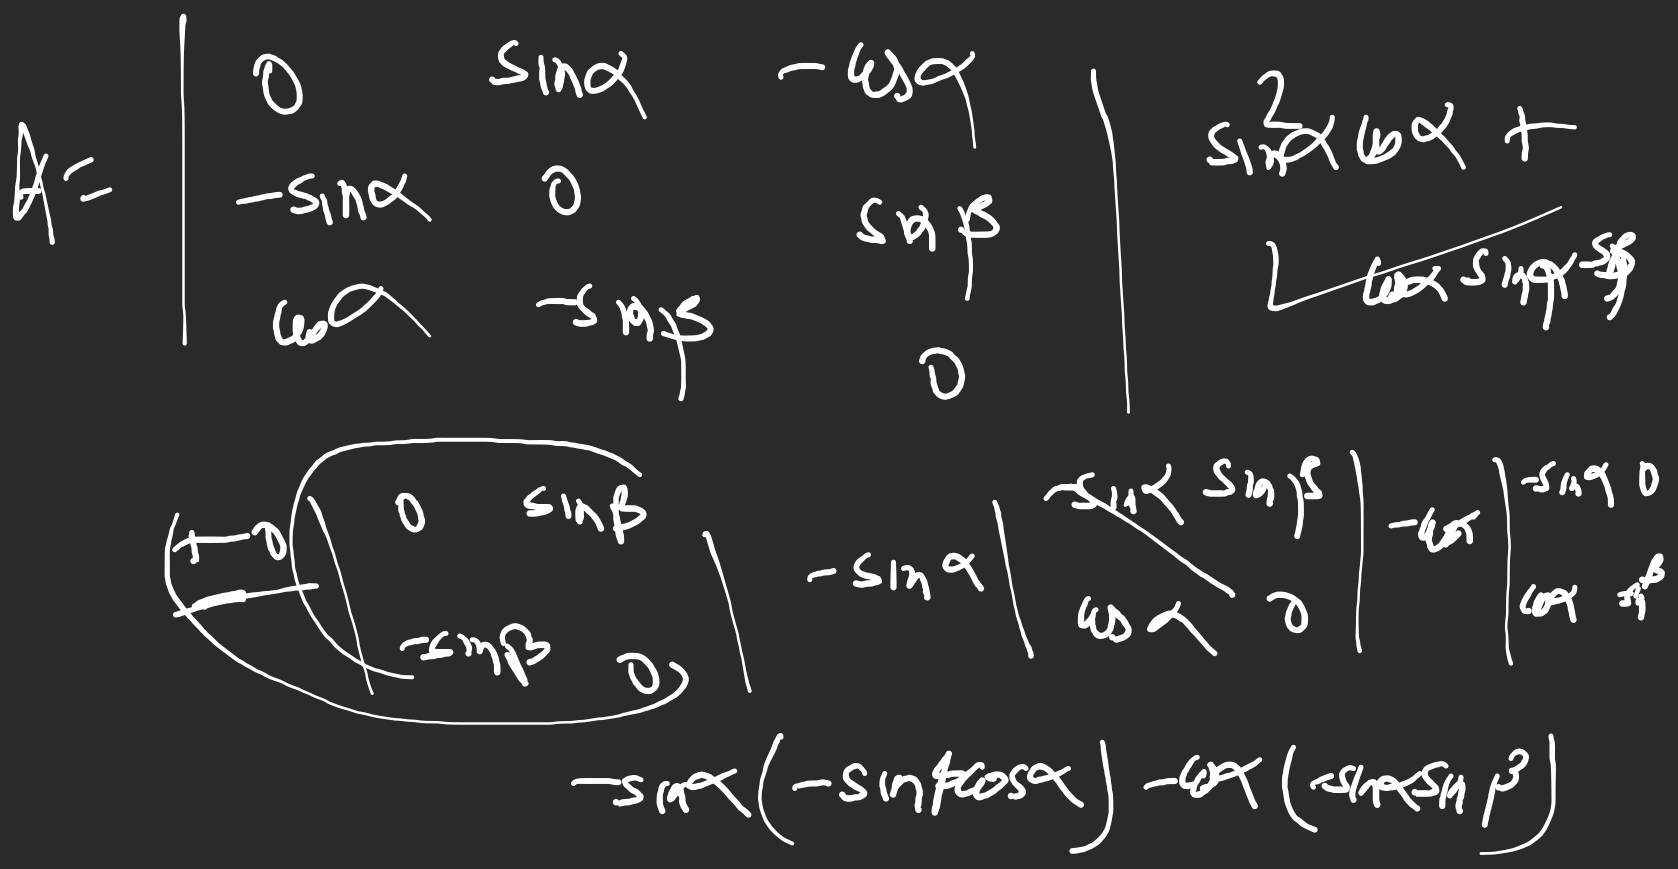 A = | 0 sinα -cosα |
| -sinα 0 sinβ |
| cosα -sinβ 0 |
sin²α cosα +
cosα sinα sinβ
+ 0 | 0 sinβ | - sinα | -sinα sinβ | - cosα | -sinα 0 |
| -sinβ 0 | | cosα 0 | | cosα -sinβ |
-sinα(-sinβcosα) -cosα(-sinαsinβ)